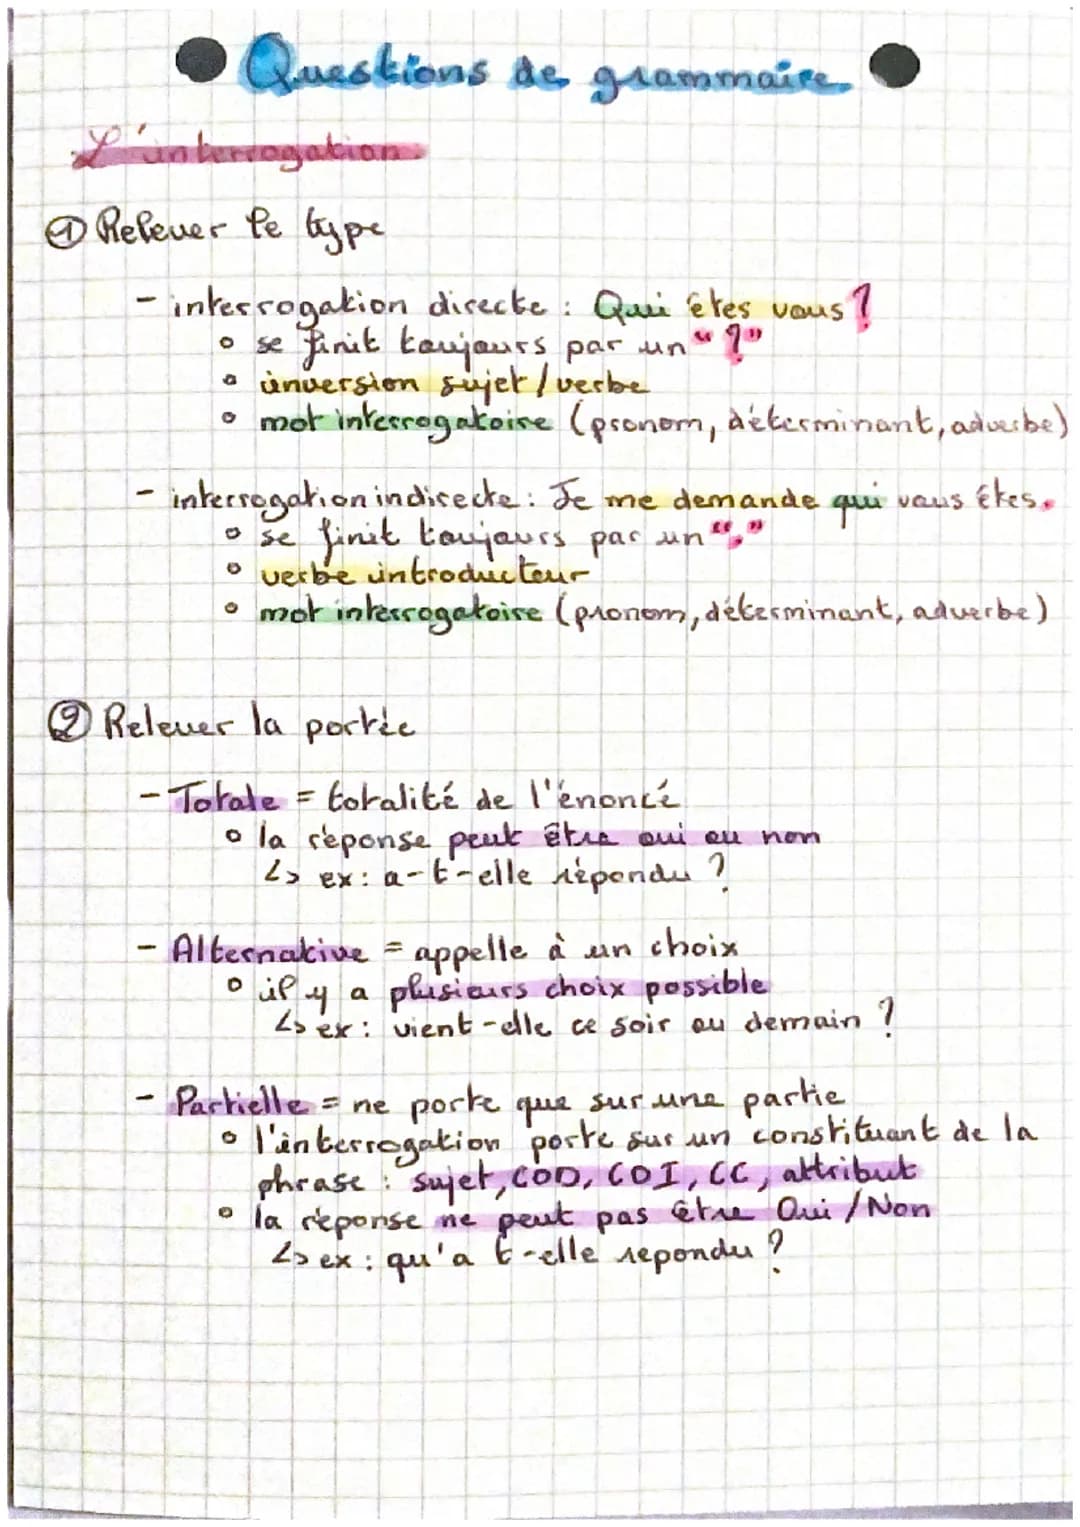 Questions de grammaire
L'interrogation
① Relever le type
- interrogation directe : Qui êtes vous ?
° se finit toujours par un "?"
° inversion sujet / verbe
° mot interrogatoire (pronom, déterminant, adverbe)
- interrogation indirecte : Je me demande qui vous êtes.
° se finit toujours par un "."
° verbe introducteur
° mot interrogatoire (pronom, déterminant, adverbe)
② Relever la portée
- Totale = totalité de l'énoncé
° la réponse peut être oui ou non
↳ ex : a-t-elle répondu ?
- Alternative = appelle à un choix
° il y a plusieurs choix possible
↳ ex : vient-elle ce soir ou demain ?
- Partielle = ne porte que sur une partie
° l'interrogation porte sur un constituant de la
phrase : sujet, COD, COI, CC, attribut
° la réponse ne peut pas être Oui / Non
↳ ex : qu'a t-elle repondu ?